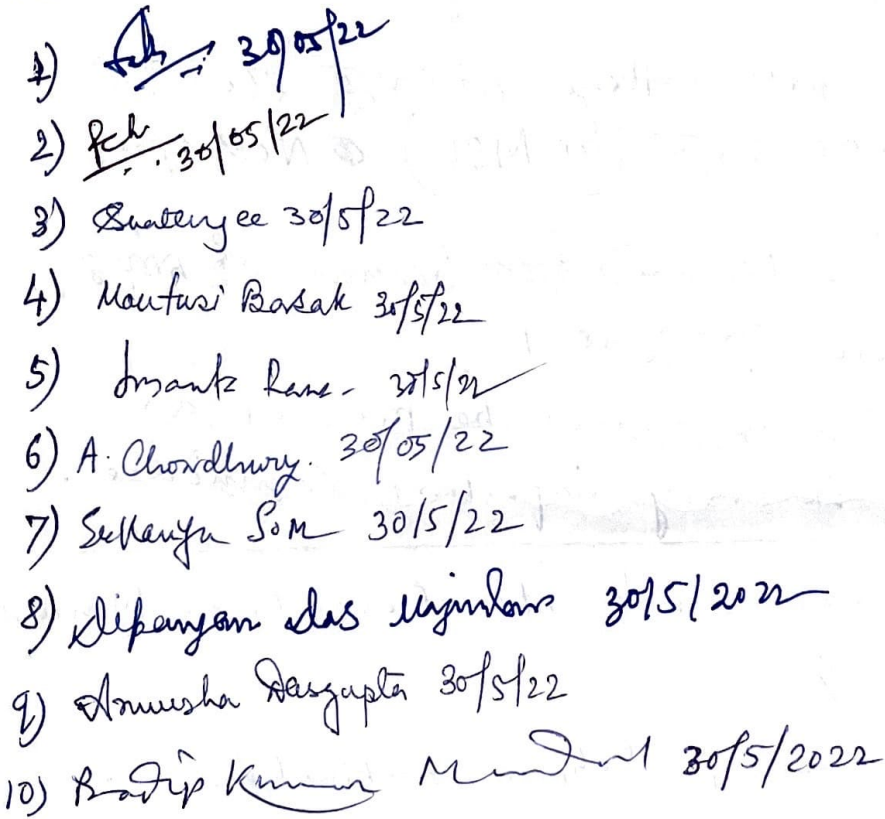 1) 30/05/22
2) 30/05/22
3) 30/5/22
4) Moutusi Basak 30/5/22
5) 30/5/22
6) A. Chowdhury. 30/05/22
7) Sukanya Som 30/5/22
8) Dipanjan Das Majumdar 30/5/2022
9) Anwesha Dasgupta 30/5/22
10) Pradip Kumar Mandal 30/5/2022